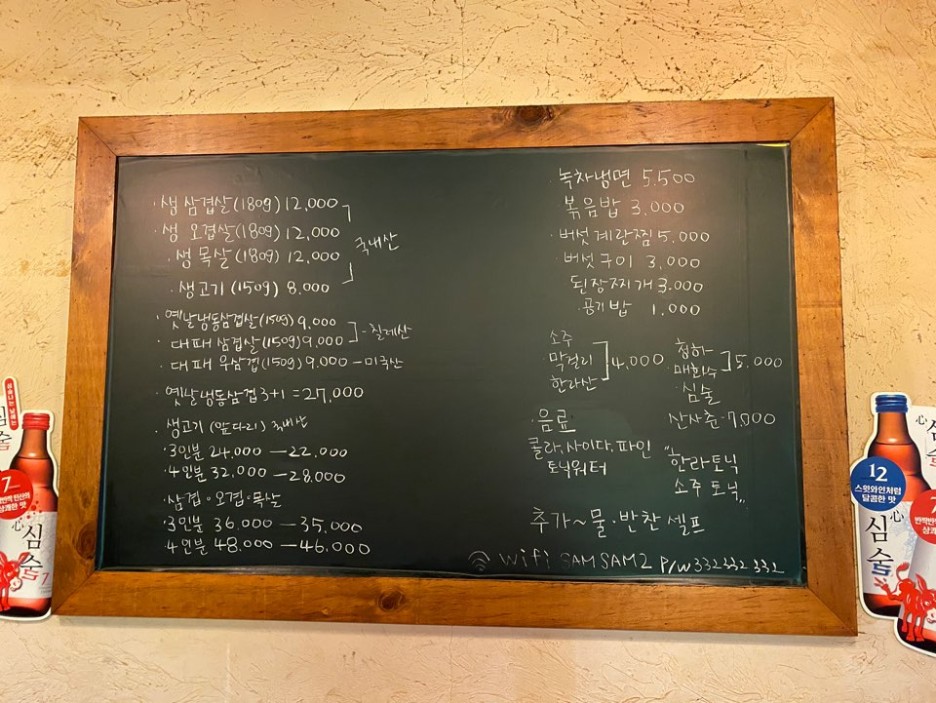 · 생 삼겹살(180g) 12,000
· 생 오겹살(180g) 12,000
· 생 목살(180g) 12,000
· 생고기 (150g) 8,000
국내산
· 옛날냉동삼겹살(150g) 9,000
· 대패 삼겹살(150g) 9,000
- 칠레산
· 대패 우삼겹(150g) 9,000 - 미국산
· 옛날냉동삼겹 3+1 = 27,000
· 생고기 (앞다리) 국내산
· 3인분 24,000 - 22,000
· 4인분 32,000 - 28,000
· 삼겹·오겹·목살
· 3인분 36,000 - 35,000
· 4인분 48,000 - 46,000
녹차냉면 5,500
볶음밥 3,000
· 버섯계란찜 5,000
· 버섯구이 3,000
된장찌개 3,000
공기밥 1,000
소주
막걸리
한라산
4,000
청하
매화수
· 심술
5,000
산사춘 - 7,000
· 음료
콜라, 사이다, 파인
토닉워터
"한라토닉
소주 토닉"
추가~물·반찬 셀프
WiFi SAMSAM2 P/W 332332332
심술
7
상쾌한 맛
心
심술
7
心
12
스윗와인처럼
달콤한 맛
心
심술
7
상쾌한 맛